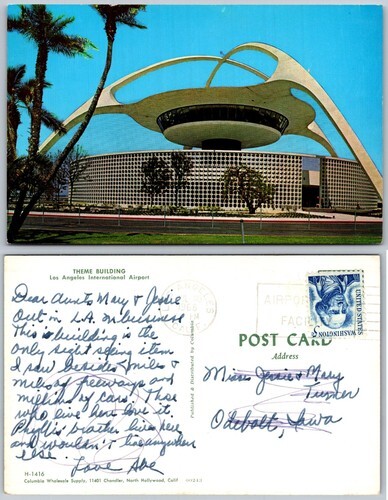 THEME BUILDING
Los Angeles International Airport
Dear Aunts Mary & Jessie
Out in L.A. on business
This is building is the
only sight seeing item
I saw besides miles &
miles of freeways and
millions of cars. Those
who live here love it.
Phyllis' brother lives here
and wouldn't live anywhere
else.
Love Abe
H-1416
Columbia Wholesale Supply, 11401 Chandler, North Hollywood, Calif
Published & Distributed by Columbia
AIRPORT
FACIL
UNITED STATES
WASHINGTON
5c
POST CARD
Address
Misses Jessie & Mary
Odebolt, Iowa